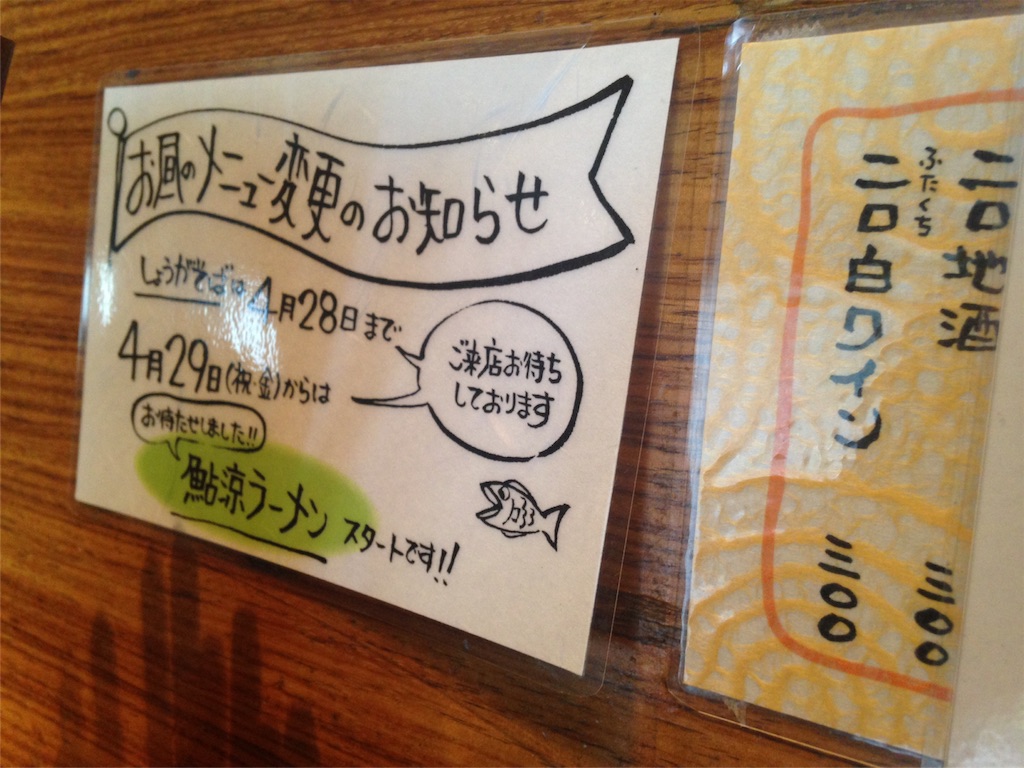 お昼のメニュー変更のお知らせ
しょうがそばは4月28日まで
4月29日(祝・金)からは
お待たせしました!!
鮎涼ラーメン スタートです!!
ご来店お待ち
しております
二口地酒 三〇〇
ふたくち
二口白ワイン 三〇〇